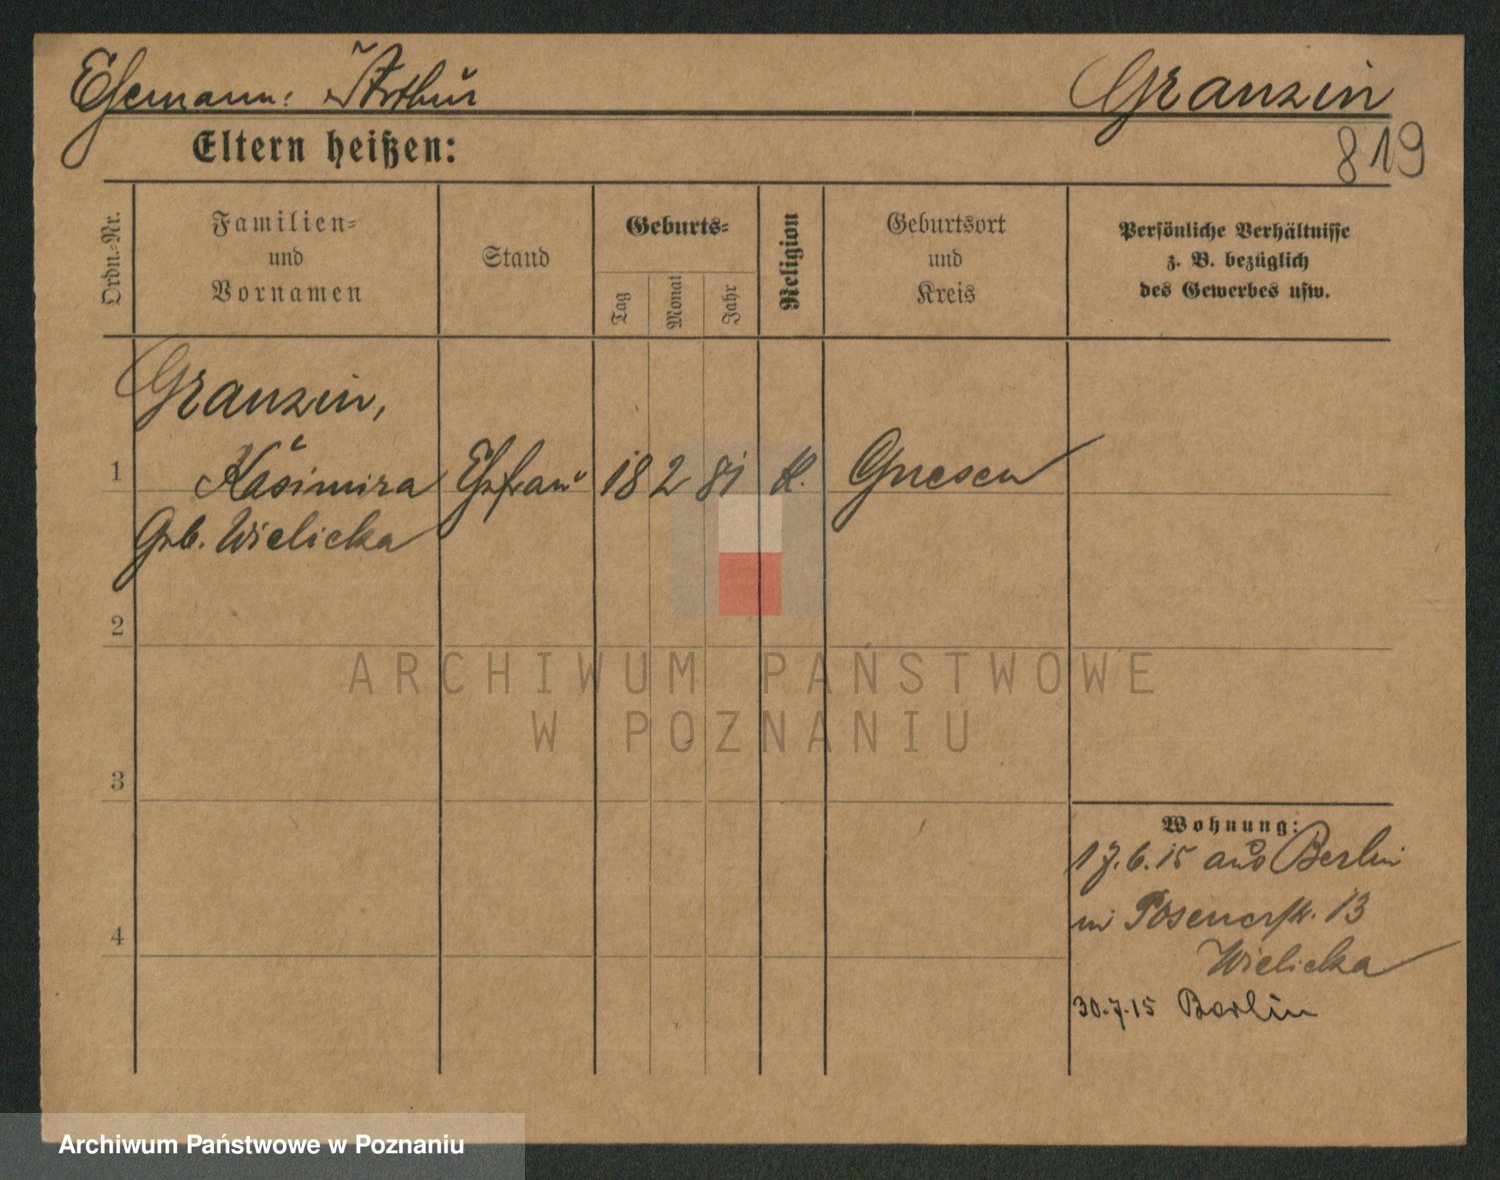 Ehemann: Arthur
Granzin
819
Eltern heißen:
Ordn.-Nr.
Familien-
und
Vornamen
Stand
Geburts-
Tag
Monat
Jahr
Religion
Geburtsort
und
Kreis
Persönliche Verhältnisse
z. B. bezüglich
des Gewerbes usw.
Granzin,
1 Kasimira Ehefrau 18 2 81 K. Gnesen
Geb. Wielicka
2
3
4
Wohnung:
17.6.15 aus Berlin
in Posenerstr. 13
Wielicka
30.7.15 Berlin
ARCHIWUM PAŃSTWOWE
W POZNANIU
Archiwum Państwowe w Poznaniu